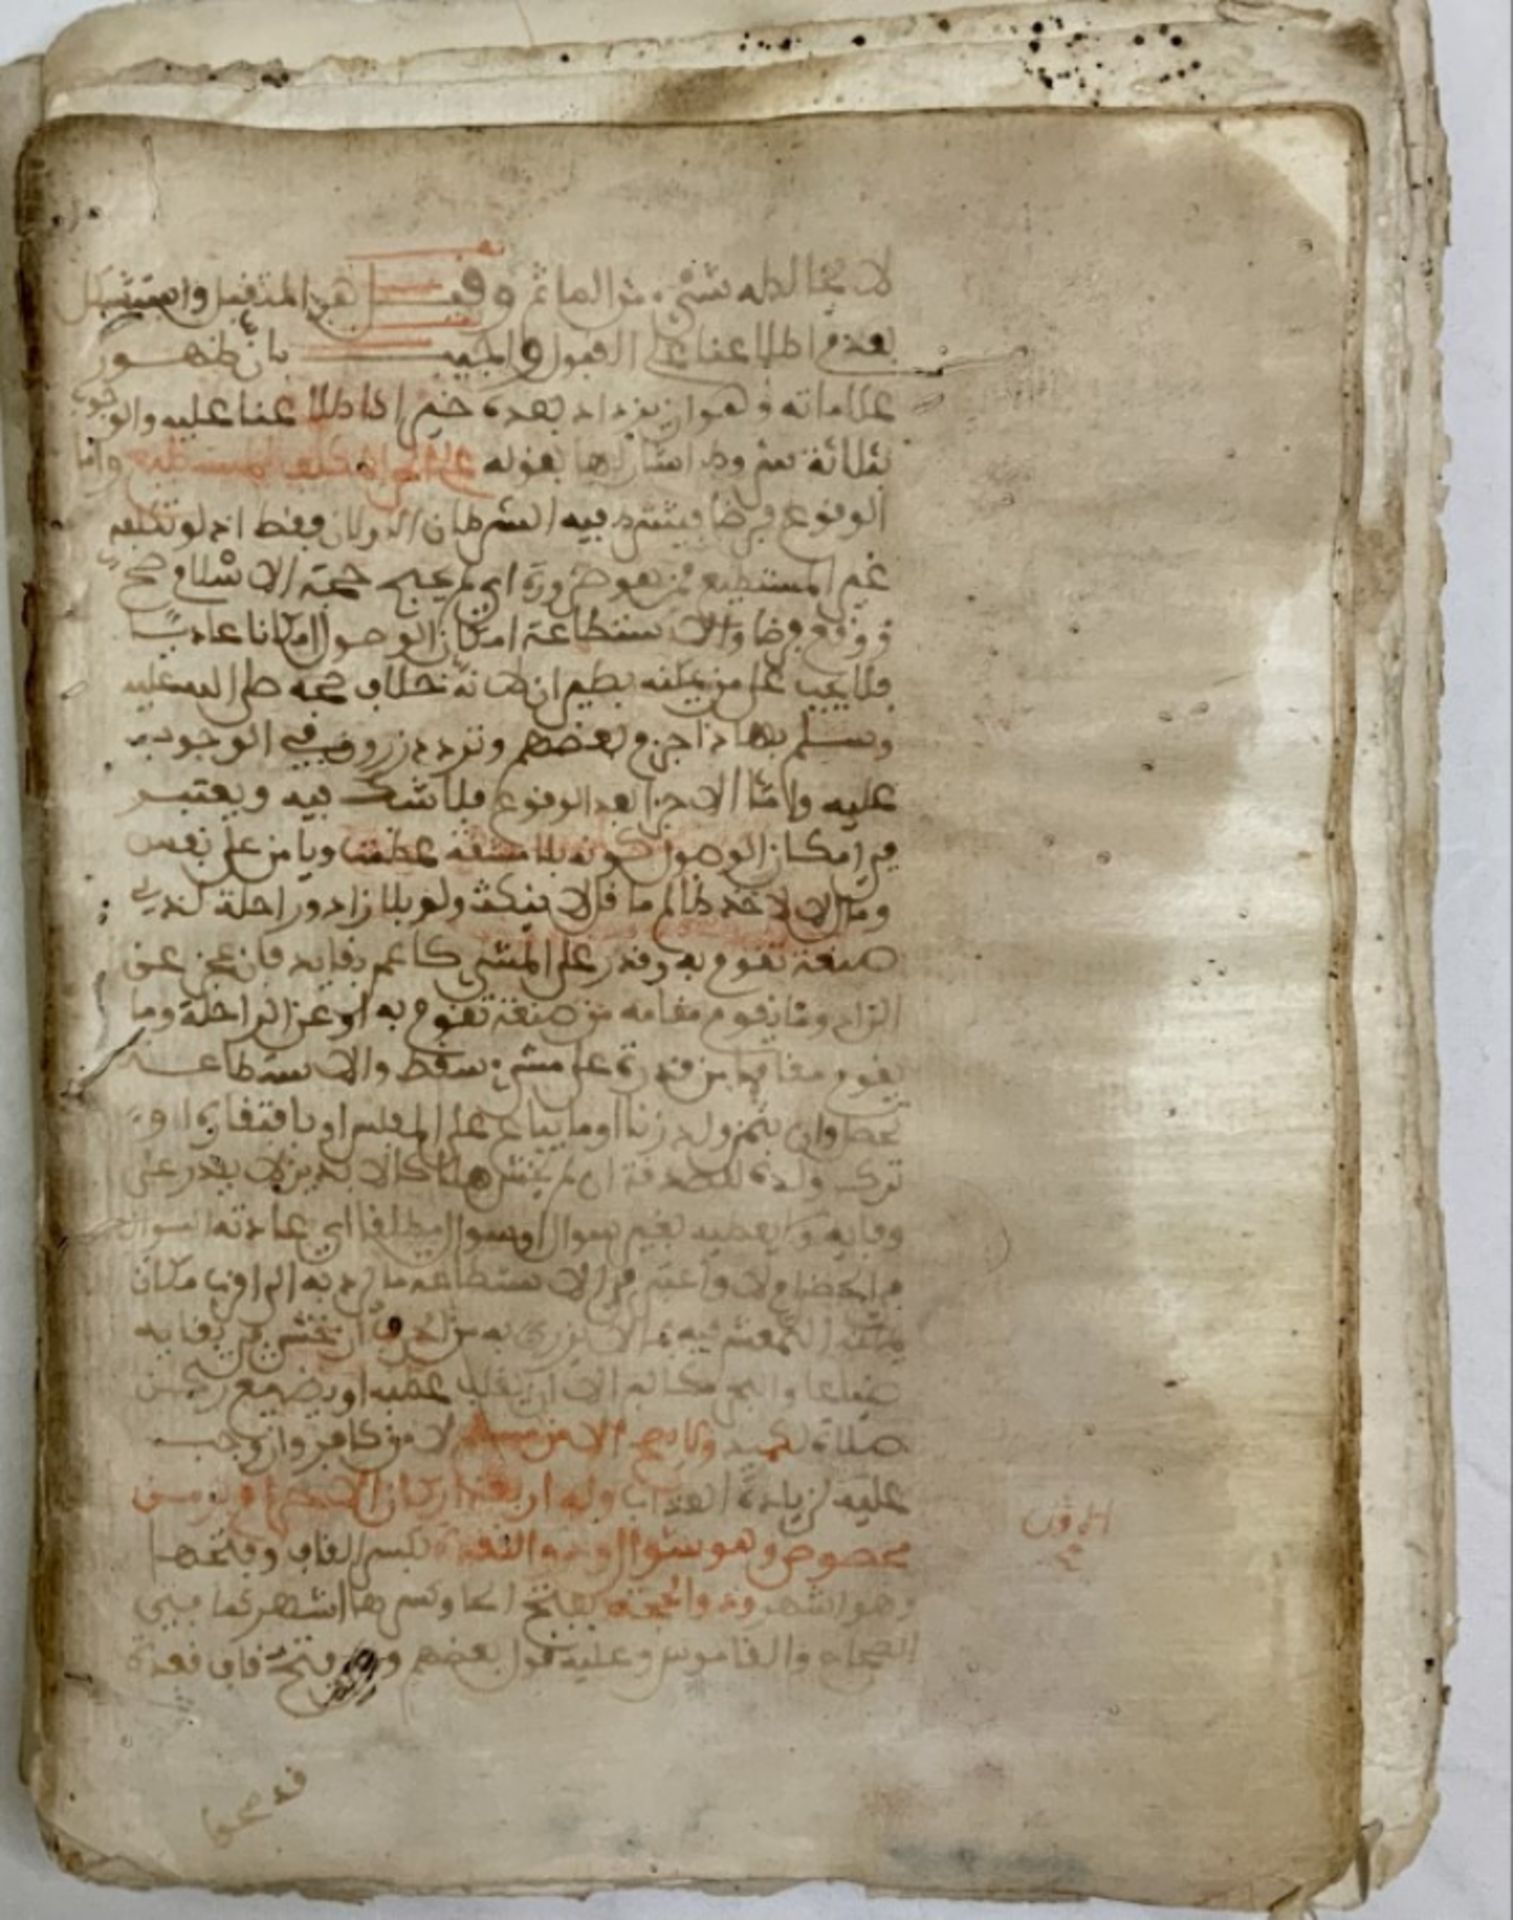 لا يخالطه شيء من المأثم وقيل هو المتقبل واستشكل
بعدم اطلاعنا على القبول وأجيب بأن ظهور
علاماته وهو ان يزداد بعده خير اطلاعنا عليه والوجوب
بثلاثة شروط اشار لها بقوله على الحر المكلف المستطيع واما
الوقوع فرضا فيشترط فيه الشرطان الاولان فقط اذ لو تكلفه
غير المستطيع ممن هو ضرورة اي لم يحج حجة الاسلام صح
ووقع فرضا والاستطاعة امكان الوصول امكانا عاديا
فلا يجب على من يمكنه بطيران لمكانه خلاف حجه صلى الله عليه
وسلم بهذا جزم بعضهم وتردد زروق في الوجوب
عليه واما الاجزا بعد الوقوع فلا شك فيه ويعتبر
في امكان الوصول كونه بلا مشقة عظمت ويامن على نفس
ومال لا لاخذ ظالم ما قل لا ينكث ولو بلا زاد وراحلة لذي
صنعة تقوم به وقدر على المشي كاعمى بقايد فان عجز عن
الزاد وما يقوم مقامه من صنعة تقوم به او عن الراحلة وما
يقوم مقامها من قدرة على مشي سقط والاستطاعة
تحصل وان بثمن ولد زنا او ما يباع على المفلس او بافتقاره او
ترك ولده للصدقة ان لم يخش هلاكا لا بدين لا يقدر على
وفايه و يعطيه لغير سوال او سوال مطلقا اي عادته السوال
ولا واعتبر في الاستطاعة ما يرد به الى اقرب مكان
يمكنه التمعش فيه بما لا يزري به من الحرف ان خشي في بقايه
ضياعا والبحر كالبر الا ان يغلب عطبه او يضيع ركن
صلاة لكميد ولا يصح الا من مسلم لا من كافر وان وجب
عليه لزيادة العذاب وله اربعة اركان الاحرام في زمن
مخصوص وهو شوال وذو القعدة بكسر القاف وفتحها
وهو اشهر وذو الحجة بفتح الحا وكسرها اشهر كما في
الصحاح والقاموس وعليه قول بعضهم وفتح قاف قعدة
الاول
قد صححوا